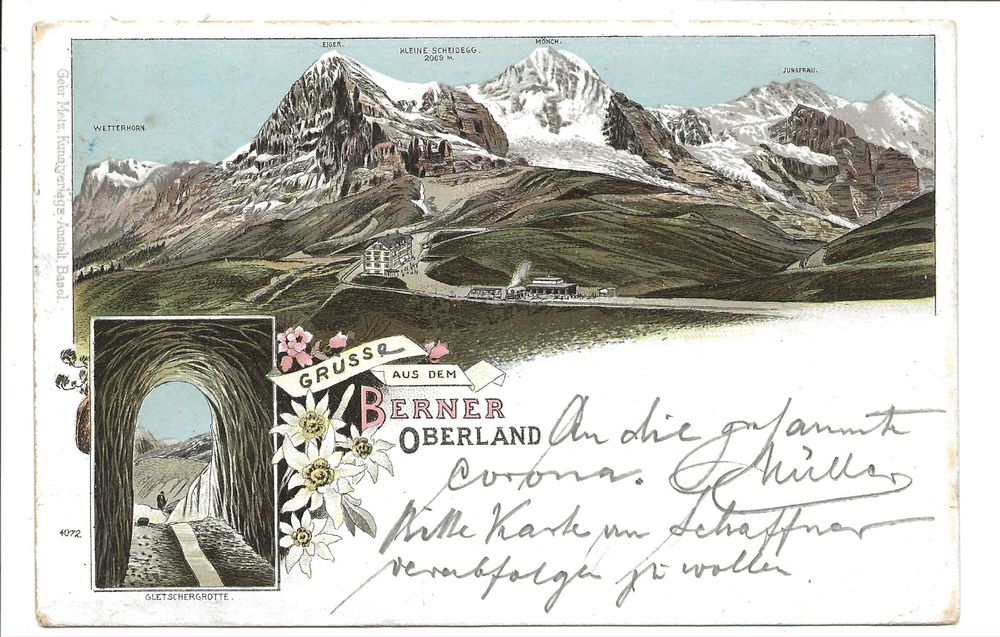 EIGER.
KLEINE SCHEIDEGG.
2069 M.
MÖNCH.
JUNGFRAU.
WETTERHORN.
Gebr. Metz, Kunstverlags-Anstalt, Basel.
GRÜSSE
AUS DEM
BERNER
OBERLAND
An die gesammte
Corona. Müller
Bitte Karte an Schaffner
verabfolgen zu wollen.
4072
GLETSCHERGROTTE.